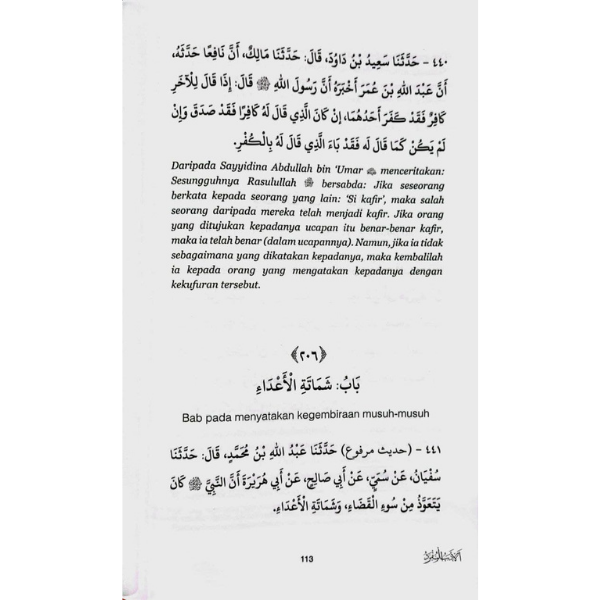 ٤٤٠ - حَدَّثَنَا سَعِيدُ بْنُ دَاوُدَ، قَالَ: حَدَّثَنَا مَالِكٌ، أَنَّ نَافِعًا حَدَّثَهُ،
أَنَّ عَبْدَ اللهِ بْنَ عُمَرَ أَخْبَرَهُ أَنَّ رَسُولَ اللهِ ﷺ قَالَ: إِذَا قَالَ لِلْآخَرِ
كَافِرٌ فَقَدْ كَفَرَ أَحَدُهُمَا، إِنْ كَانَ الَّذِي قَالَ لَهُ كَافِرًا فَقَدْ صَدَقَ وَإِنْ
لَمْ يَكُنْ كَمَا قَالَ لَه فَقَدْ بَاءَ الَّذِي قَالَ لَهُ بِالْكُفْرِ.
Daripada Sayyidina Abdullah bin 'Umar menceritakan:
Sesungguhnya Rasulullah ﷺ bersabda: Jika seseorang
berkata kepada seorang yang lain: 'Si kafir', maka salah
seorang daripada mereka telah menjadi kafir. Jika orang
yang ditujukan kepadanya ucapan itu benar-benar kafir,
maka ia telah benar (dalam ucapannya). Namun, jika ia tidak
sebagaimana yang dikatakan kepadanya, maka kembalilah
ia kepada orang yang mengatakan kepadanya dengan
kekufuran tersebut.
﴿٢٠٦﴾
بَابُ: شَمَاتَةِ الْأَعْدَاءِ
Bab pada menyatakan kegembiraan musuh-musuh
٤٤١ - (حديث مرفوع) حَدَّثَنَا عَبْدُ اللهِ بْنُ مُحَمَّدٍ، قَالَ: حَدَّثَنَا
سُفْيَانُ، عَنْ سُمَيٍّ، عَنْ أَبِي صَالِحٍ، عَنْ أَبِي هُرَيْرَةَ أَنَّ النَّبِيَّ ﷺ كَانَ
يَتَعَوَّذُ مِنْ سُوءِ الْقَضَاءِ، وَشَمَاتَةِ الْأَعْدَاءِ.
113